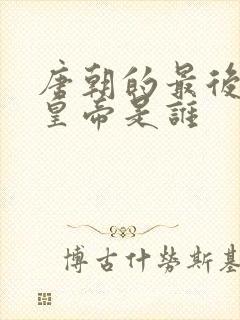 唐朝的最後
皇帝是誰
博古什勞斯基